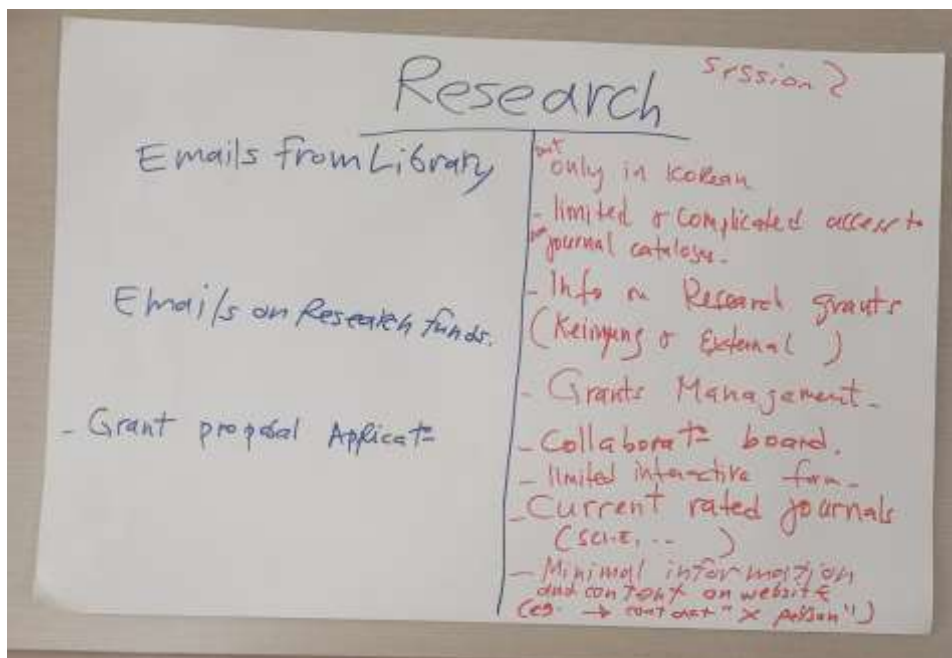 Research
Session 2
Emails from Library
Emails on Research funds.
- Grant proposal Applicat=
but only in Korean
- limited & complicated access to
journal catalogs.
- Info on Research grants
(Keimyung & External )
- Grants Management -
- Collaborat= board.
- limited interactive form -
- Current rated journals
(SCI-E, -- )
- Minimal information
and content on website
(eg. → contact "X person")